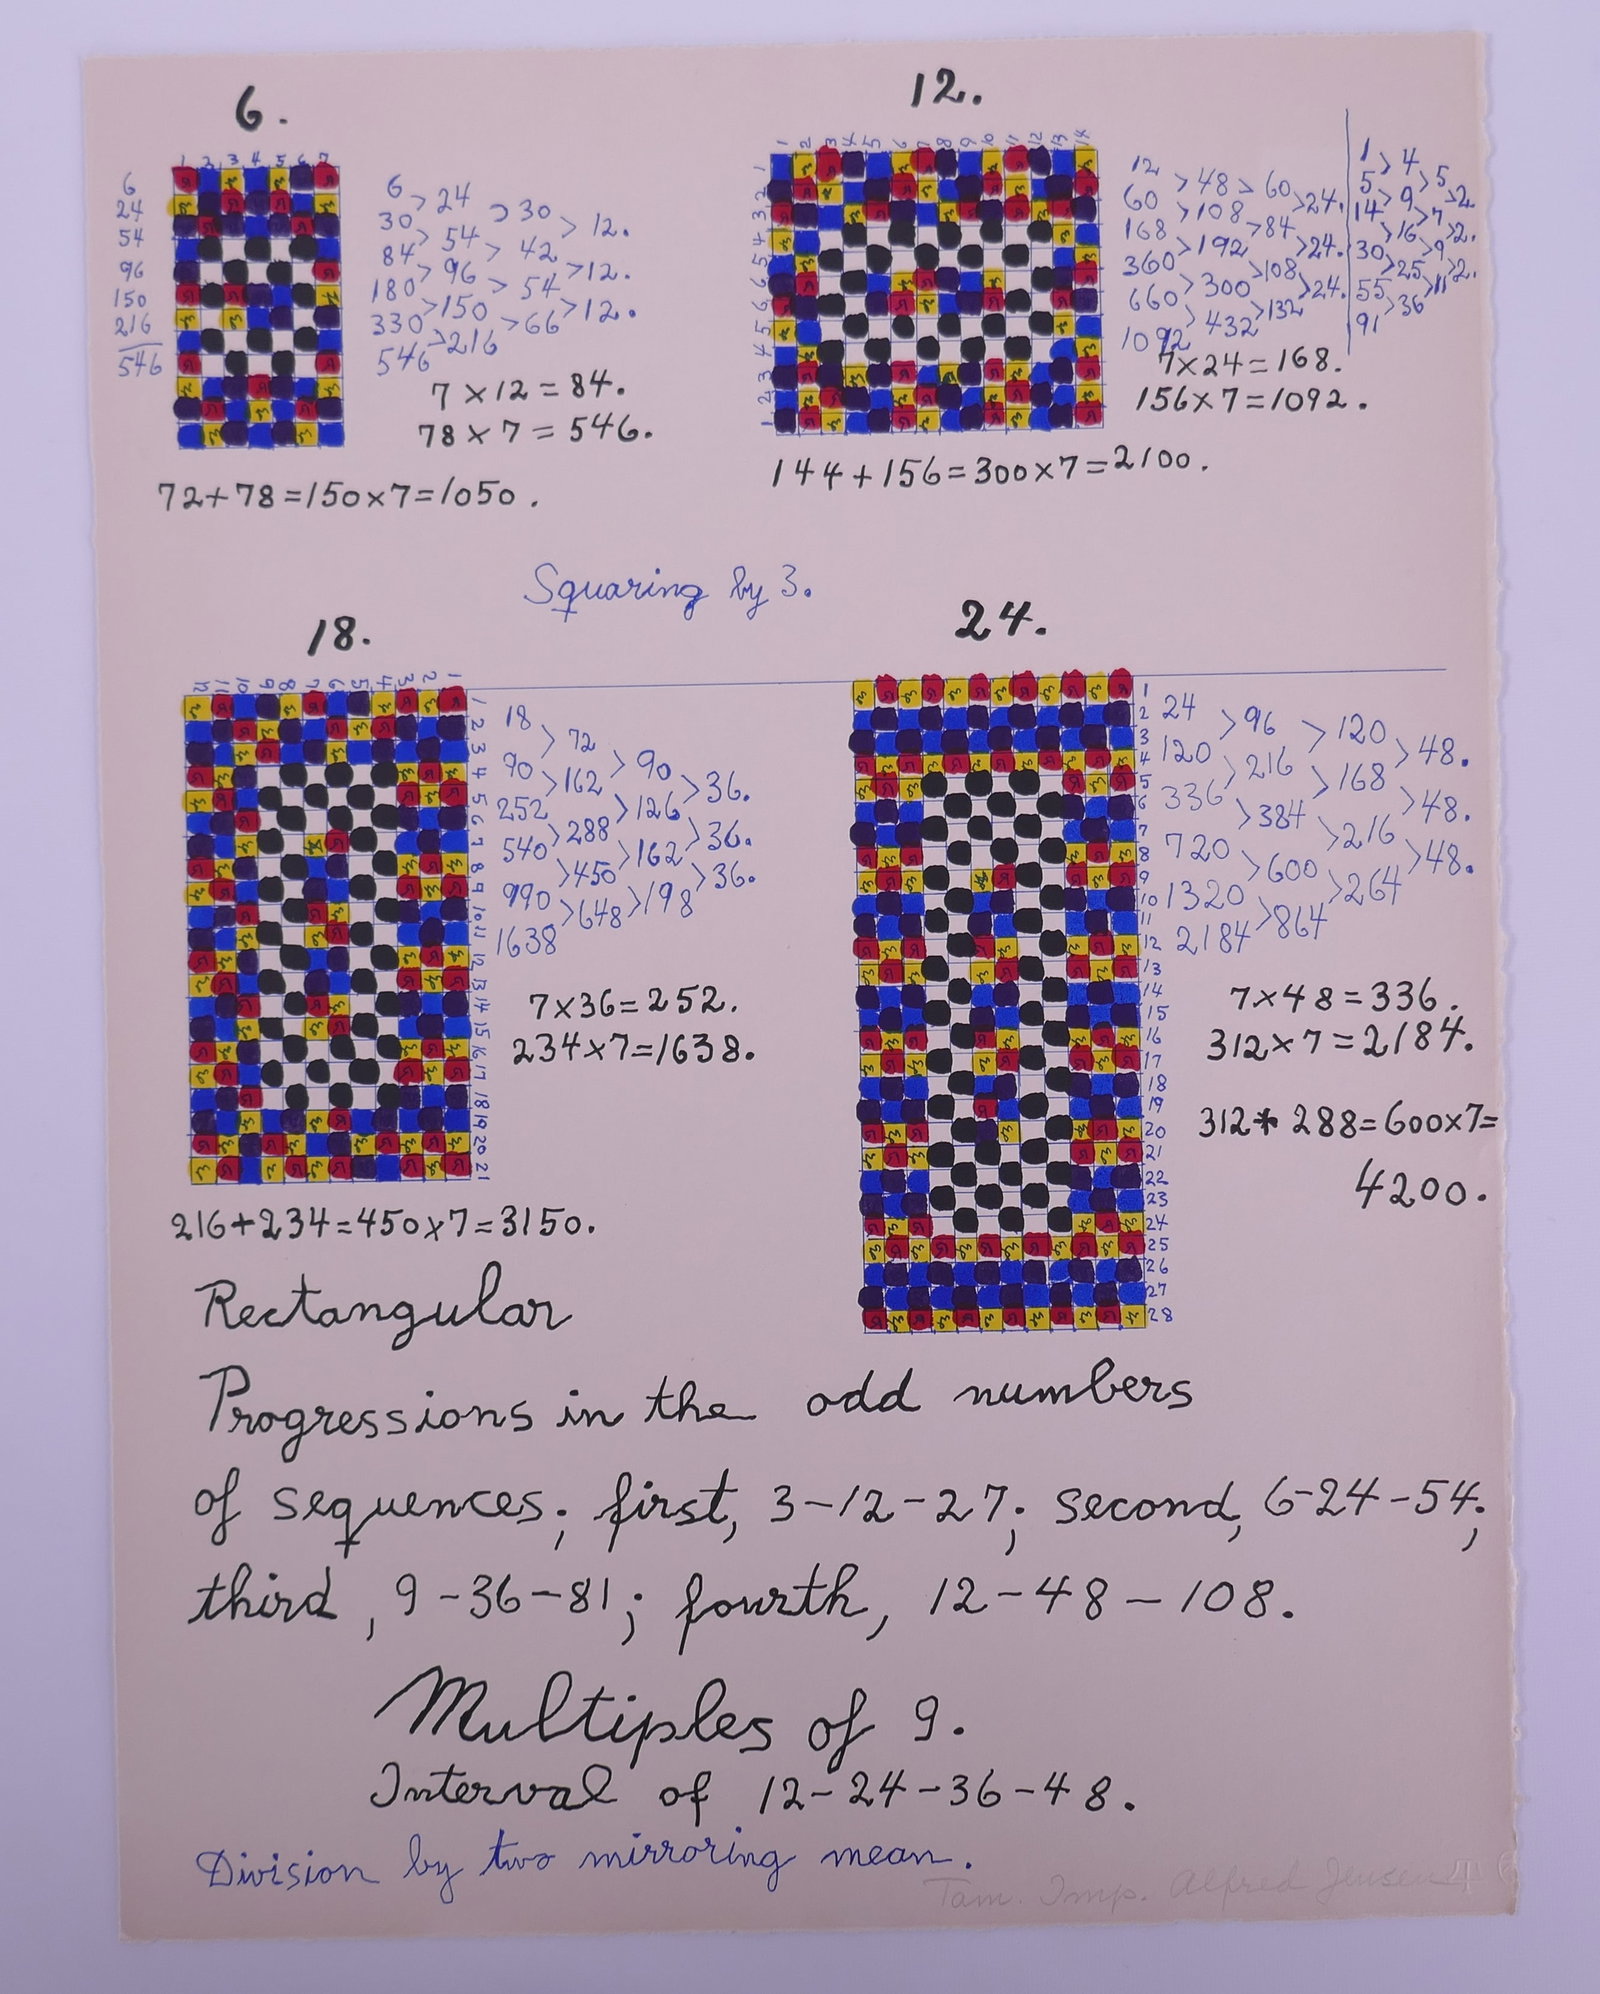 6.
1 2 3 4 5 6 7
6
24
54
96
150
216
546
6 > 24 > 30 > 12.
30 > 54 > 42 > 12.
84 > 96 > 54 > 12.
180 > 150 > 66
330 > 216
546
7 × 12 = 84.
78 × 7 = 546.
72+78=150×7=1050.
12.
1 2 3 4 5 6 7 8 9 10 11 12 13 14
1 2 3 4 5 6 6 5 4 3 2 1
12 > 48 > 60 > 24.
60 > 108 > 84 > 24.
168 > 192 > 108 > 24.
360 > 300 > 132
660 > 432
1092
1 > 4 > 5 > 2.
5 > 9 > 7 > 2.
14 > 16 > 9 > 2.
30 > 25 > 11
55 > 36
91
7×24=168.
156×7=1092.
144+156=300×7=2100.
Squaring by 3.
18.
12 11 10 9 8 7 6 5 4 3 2 1
1 2 3 4 5 6 7 8 9 10 11 12 13 14 15 16 17 18 19 20 21
18 > 72 > 90 > 36.
90 > 162 > 126 > 36.
252 > 288 > 162 > 36.
540 > 450 > 198
990 > 648
1638
7×36=252.
234×7=1638.
216+234=450×7=3150.
24.
1
2
3
4
5
6
7
8
9
10
11
12
13
14
15
16
17
18
19
20
21
22
23
24
25
26
27
28
24 > 96 > 120 > 48.
120 > 216 > 168 > 48.
336 > 384 > 216 > 48.
720 > 600 > 264
1320 > 864
2184
7×48=336.
312×7=2184.
312+ 288=600×7=
4200.
Rectangular
Progressions in the odd numbers
of sequences; first, 3-12-27; second, 6-24-54;
third, 9-36-81; fourth, 12-48-108.
Multiples of 9.
Interval of 12-24-36-48.
Division by two mirroring mean.
Tam. Imp. Alfred Jensen